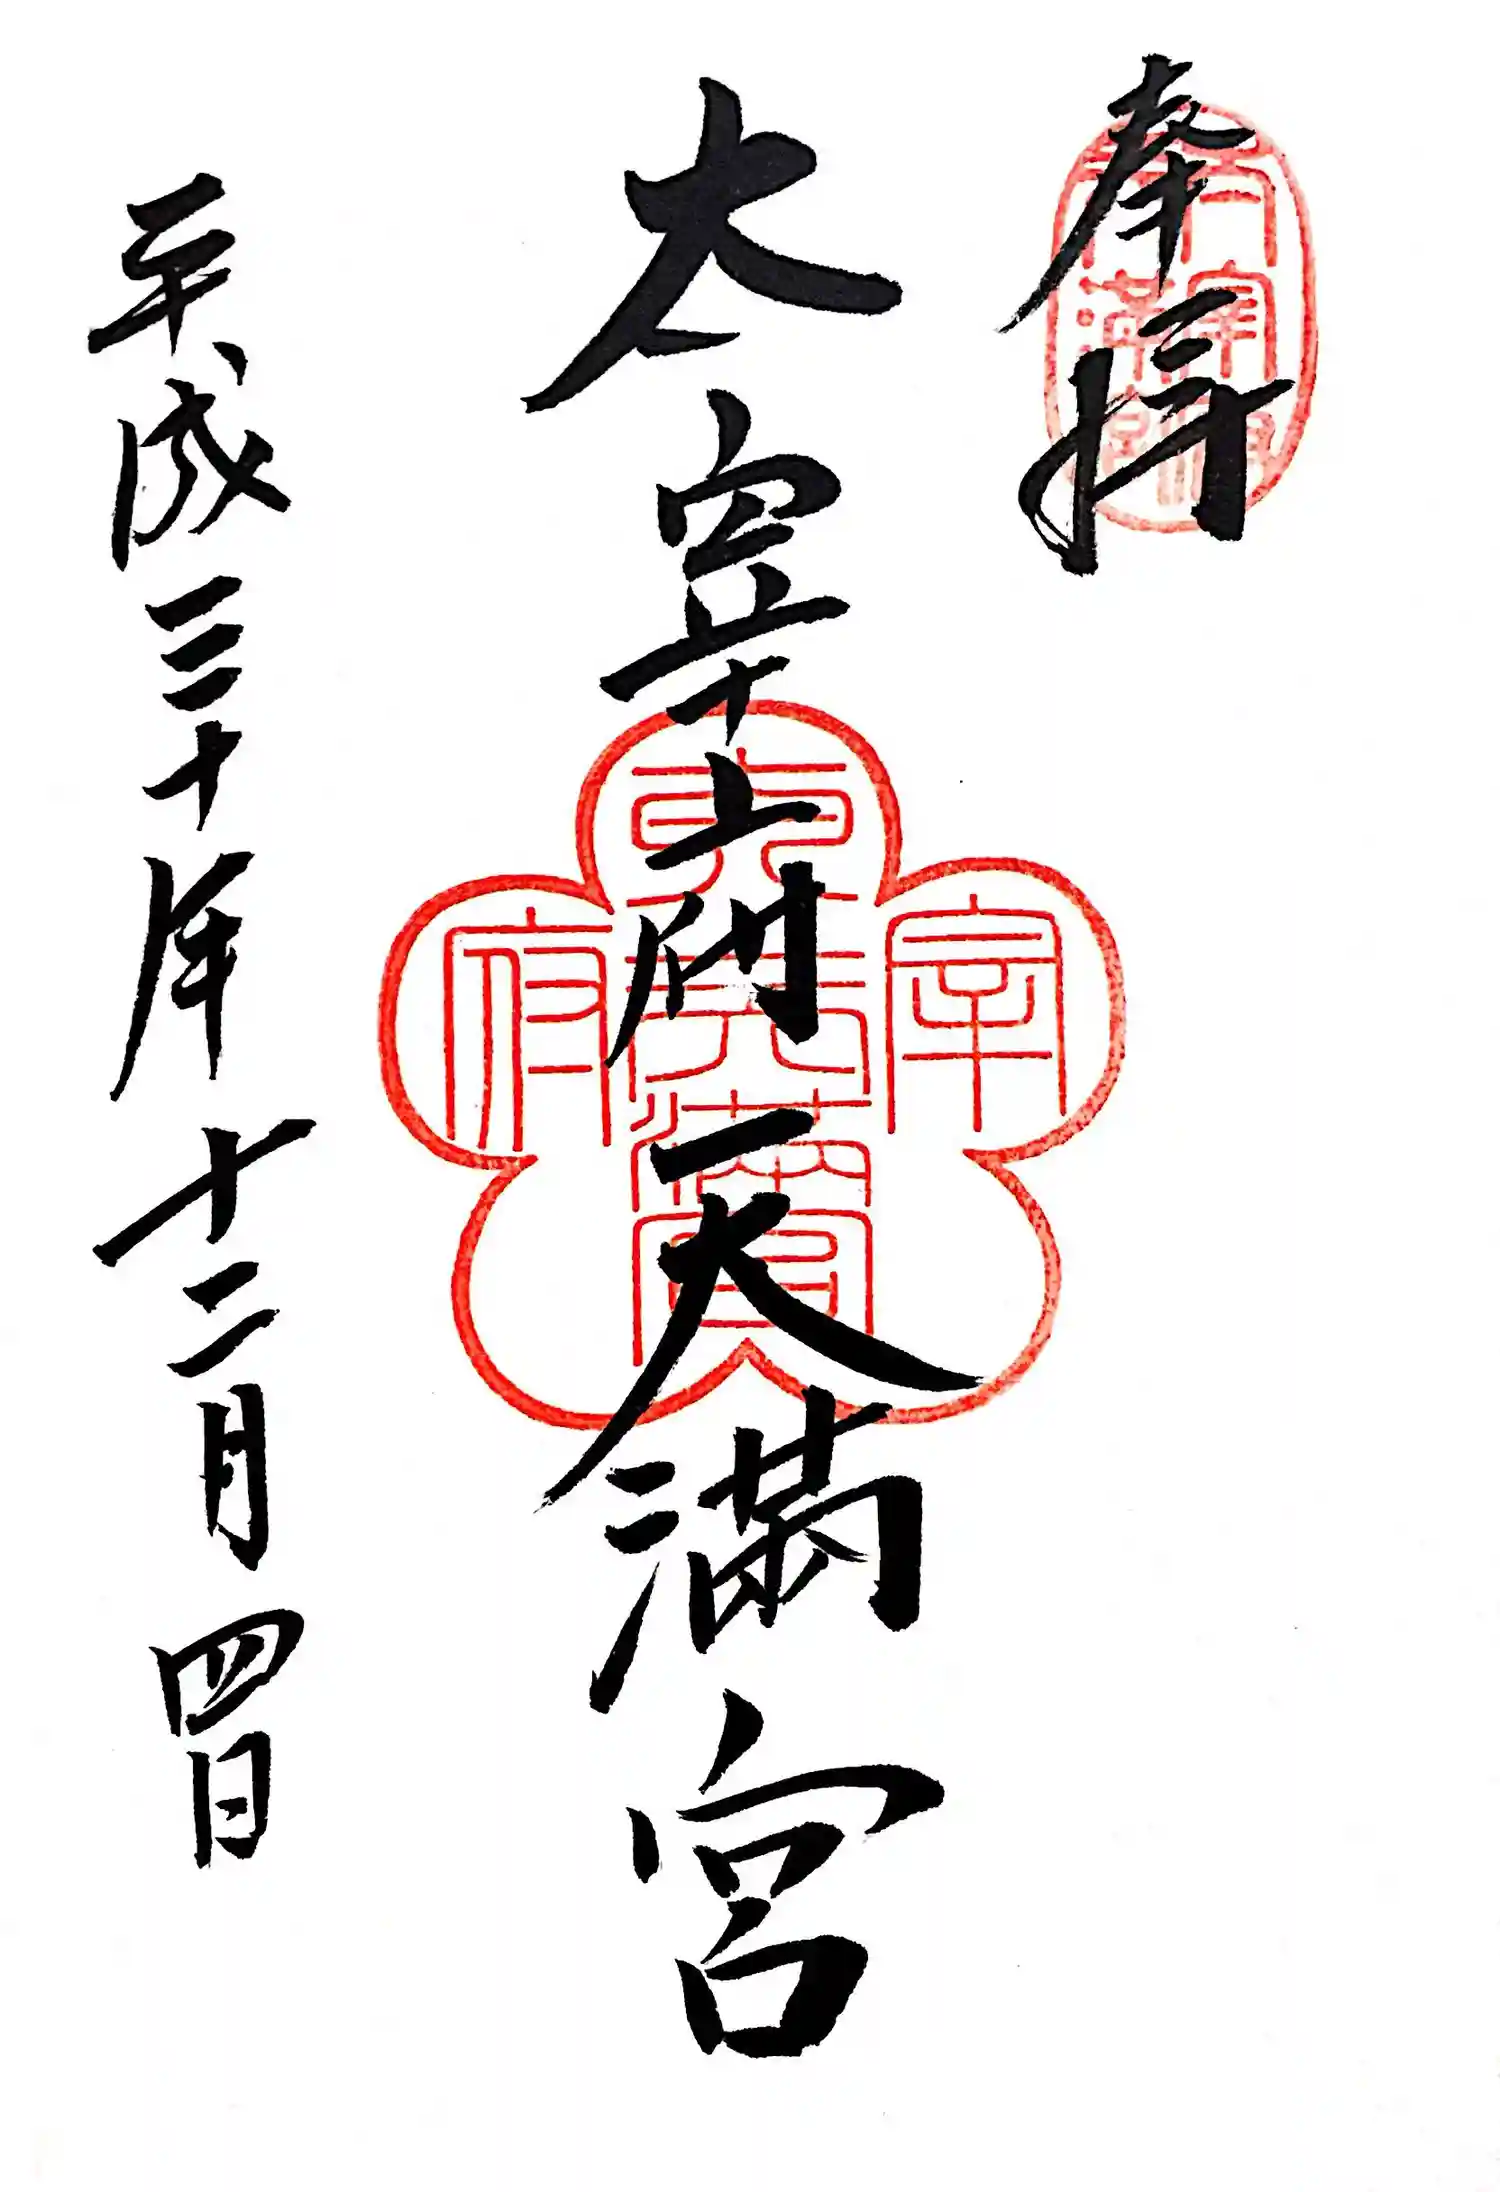 奉拝
太宰府
天満宮
太宰府天満宮
平成三十年十二月四日